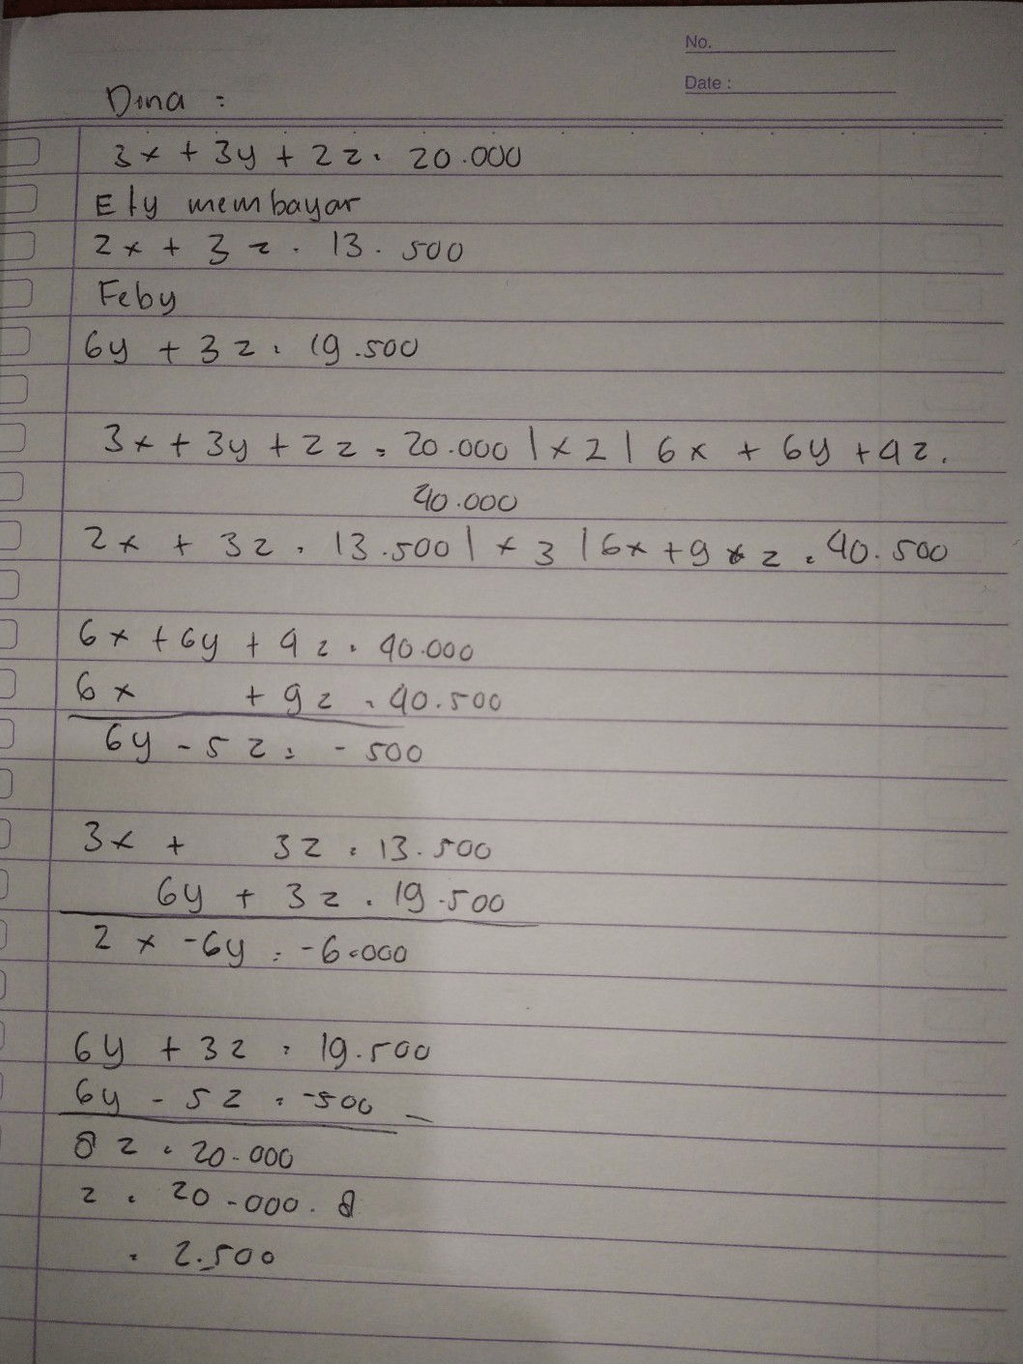 No.
Date :
Dina :
3x + 3y + 2z = 20.000
Ety membayar
2x + 3z = 13.500
Feby
6y + 3z = 19.500
3x + 3y + 2z = 20.000 | x 2 | 6x + 6y + 4z =
40.000
2x + 3z = 13.500 | x 3 | 6x + 9 z = 40.500
6x + 6y + 4z = 40.000
6x + 9z = 40.500
6y - 5z = -500
3x + 3z = 13.500
6y + 3z = 19.500
2x - 6y = -6.000
6y + 3z = 19.500
6y - 5z = -500 -
8z = 20.000
z = 20.000 : 8
= 2.500